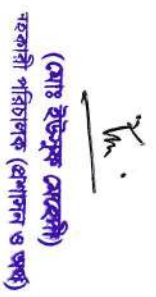 (মোঃ ইউসুফ মেহেদী)
সহকারী পরিচালক (প্রশাসন ও অর্থ)